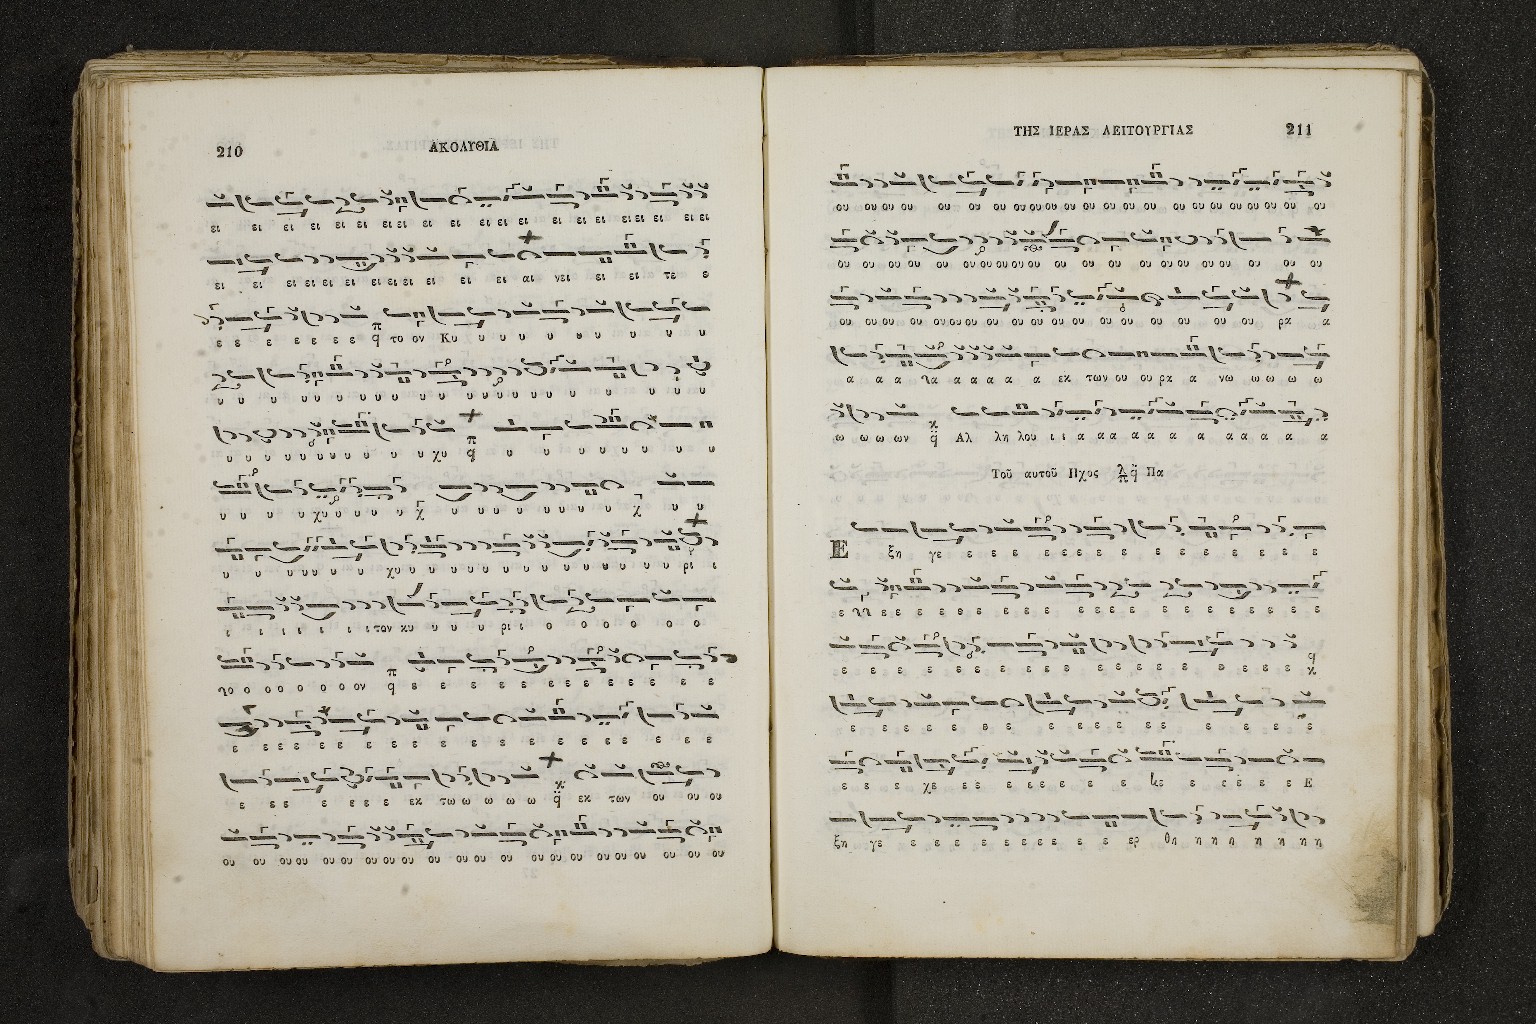 210
ΑΚΟΛΥΘΙΑ
ει ει ει ει ει ει ει ει ει ει ει ει ει ει ει ει ει ει ει
ει ει ει ει ει ει ει ει ει ει ει αι νει ει ει τε ε
ε ε ε ε ε ε ε π q το ον Κυ υ υ υ υ υ υ υ υ υ
υ υ υ υ υ υ υ υ υ υ υ υ υ υ υ υ υ υ υ υ
υ υ υ υ υ υ υ υ υ υ χυ π q υ υ υ υ υ υ υ
υ υ υ υ χυ υ υ υ υ χ υ υ υ υ υ υ υ υ χ υ υ
υ υ υ υ υ υ υ χυ υ υ υ υ υ υ υ υ υ υ υ υ ρι ι
ι ι ι ι ι ι ι τον κυ υ υ υ ρι ι ο ο ο ο ο ο
λο ο ο ο ο ο ο ον π q ε ε ε ε ε ε ε ε ε ε ε ε
ε ε ε ε ε ε ε ε ε ε ε ε ε ε ε ε ε ε ε
ε ε ε ε ε ε ε εκ τω ω ω ω ω κ q εκ των ου ου ου
ου ου ου ου ου ου ου ου ου ου ου ου ου ου ου ου ου ου ου ου ου ου
ΤΗΣ ΙΕΡΑΣ ΛΕΙΤΟΥΡΓΙΑΣ
211
ου ου ου ου ου ου ου ου ου ου ου ου ου ου ου ου ου ου ου ου ου ου ου
ου ου ου ου ου ου ου ου ου ου ου ου ου ου ου ου ου ου ου ου ου
ου ου ου ου ου ου ου ου ου ου ου ου ου ου ου ου ου ου ρα α
α α α λα α α α α α εκ των ου ου ρα α νω ω ω ω ω
ω ω ω ων κ q Αλ λη λου ι ι α α α α α α α α α α α α
Τοῦ αυτοῦ Ηχος λ π q Πα
Ε ξη γε ε ε ε ε ε ε ε ε ε ε ε ε ε ε ε
ε λλ ε ε ε ε ε ε ε ε ε ε ε ε ε ε ε ε ε ε
ε ε ε ε ε ε ε ε ε ε ε ε ε ε ε ε ε ε ε ε q κ
ε ε ε ε ε ε ε ε ε ε ε ε ε ε ε ε
ε ε ε χε ε ε ε ε ε ε ε ε κε ε ε ε ε ε Ε
ξη γε ε ε ε ε ε ε ε ε ε ερ θη η η η η η η